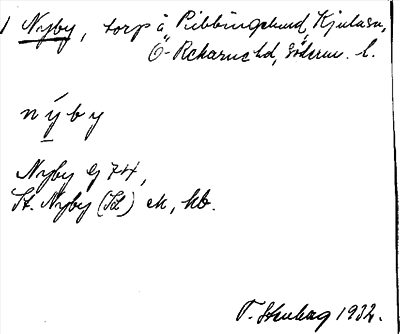 1 Nyby, torp å Ribbingelund, Kjulasn,
Ö-Rekarne hd, Söderm. l.
nýby
Nyby Gj 74,
St. Nyby (Sd) ek, hb.
T. Stenhag 1932.